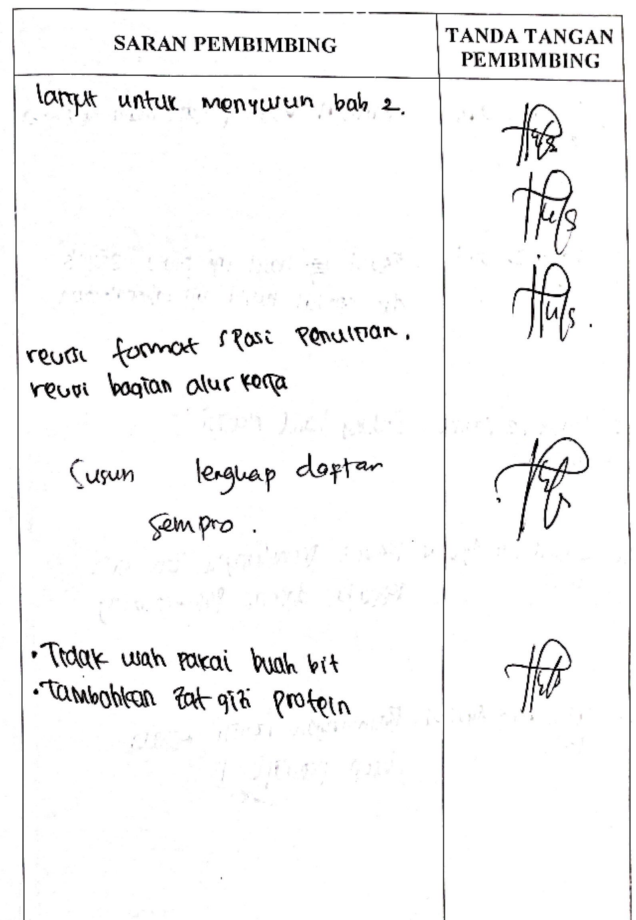 SARAN PEMBIMBING
TANDA TANGAN
PEMBIMBING
lanjut untuk menyusun bab 2.
revisi format spasi Penulisan.
revisi bagian alur kerja
Susun lengkap daftar
sempro.
• Tidak usah pakai buah bit
• Tambahkan zat gizi protein